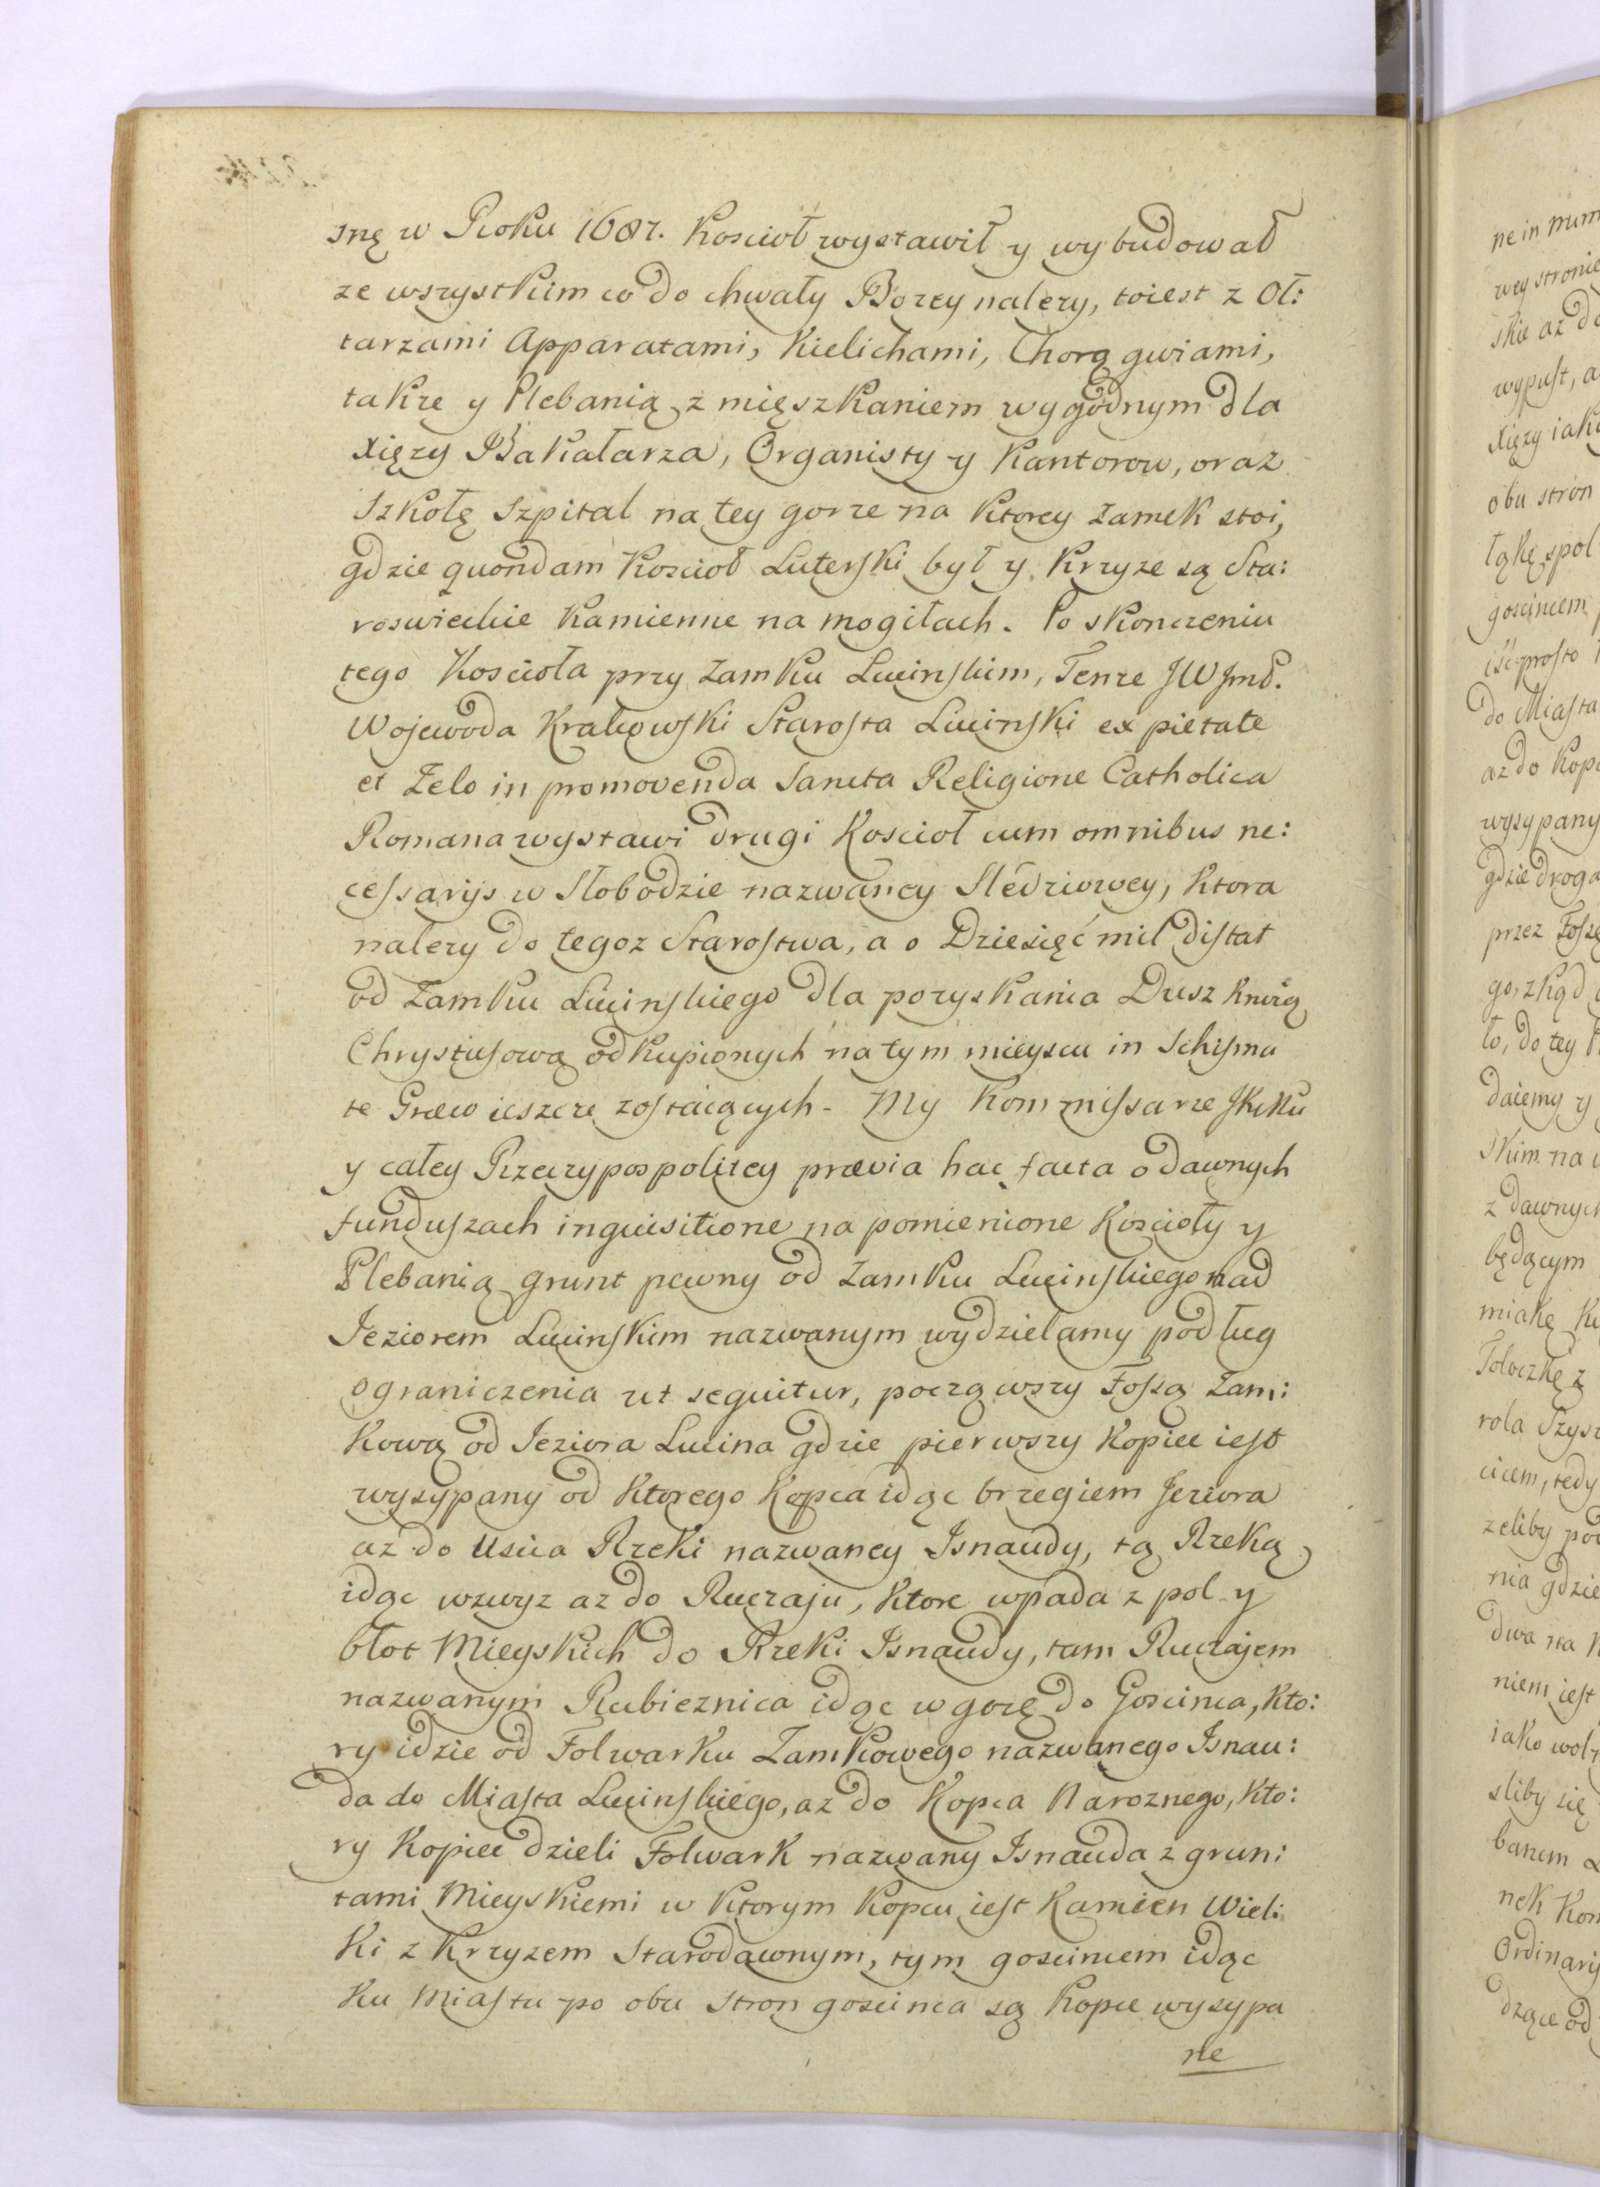 snę w Roku 1687. Koscioł wystawił y wybudował
ze wszystkim co do chwały Bozey nalezy, toiest z Oł:
tarzami Apparatami, Kielichami, Chorągwiami,
takze y Plebanią z mięszkaniem wygodnym dla
Xięzy Bakałarza, Organisty y Kantorow, oraz
Szkołę Szpital na tey gorze na ktorey Zamek stoi,
gdzie quondam Koscioł Luterski był y Krzyze są Sta:
roswieckie Kamienne na mogiłach. Po skonczeniu
tego Koscioła przy Zamku Lucinskim, Tenze JW Jmć.
Wojewoda Krakowski Starosta Lucinski ex pietate
et Zelo in promovenda Sancta Religione Catholica
Romana wystawi drugi Kosciol cum omnibus ne:
cessarijs w Słobodzie nazwaney Sledziowey, ktora
nalezy do tegoz Starostwa, a o Dziesięć mil distat
od Zamku Lucinskiego dla pozyskania Dusz krwią
Chrystusową odkupionych na tym mieyscu in Schisma
te Græco ieszcze zostaiących. My Kommissarze JKMci
y całey Rzeczypospolitey prævia hac facta o dawnych
funduszach inquisitione na pomienione Koscioły y
Plebanią grunt pewny od Zamku Lucinskiego nad
Jeziorem Lucinskim nazwanym wydzielamy podług
ograniczenia ut sequitur, począwszy Fossą Zam:
kową od Jeziora Lucina gdzie pierwszy Kopiec iest
wysypany od ktorego Kopca idąc brzegiem Jeziora
az do Uscia Rzeki nazwaney Isnaudy, tą Rzeką
idąc wzwyz az do Ruczaju, ktore wpada z pol y
błot Mieyskich do Rzeki Isnaudy, tam Ruczajem
nazwanym Rubieznica idąc w gorę do Goscinca, kto:
ry idzie od Folwarku Zamkowego nazwanego Isnau:
da do Miasta Lucinskiego, az do Kopca Naroznego, kto:
ry Kopiec dzieli Folwark nazwany Isnauda z grun:
tami Mieyskiemi w ktorym Kopcu iest Kamien Wiel:
ki z Krzyzem Starodawnym, tym goscincem idąc
ku Miastu po obu stron goscinca są Kopce wysypa
ne